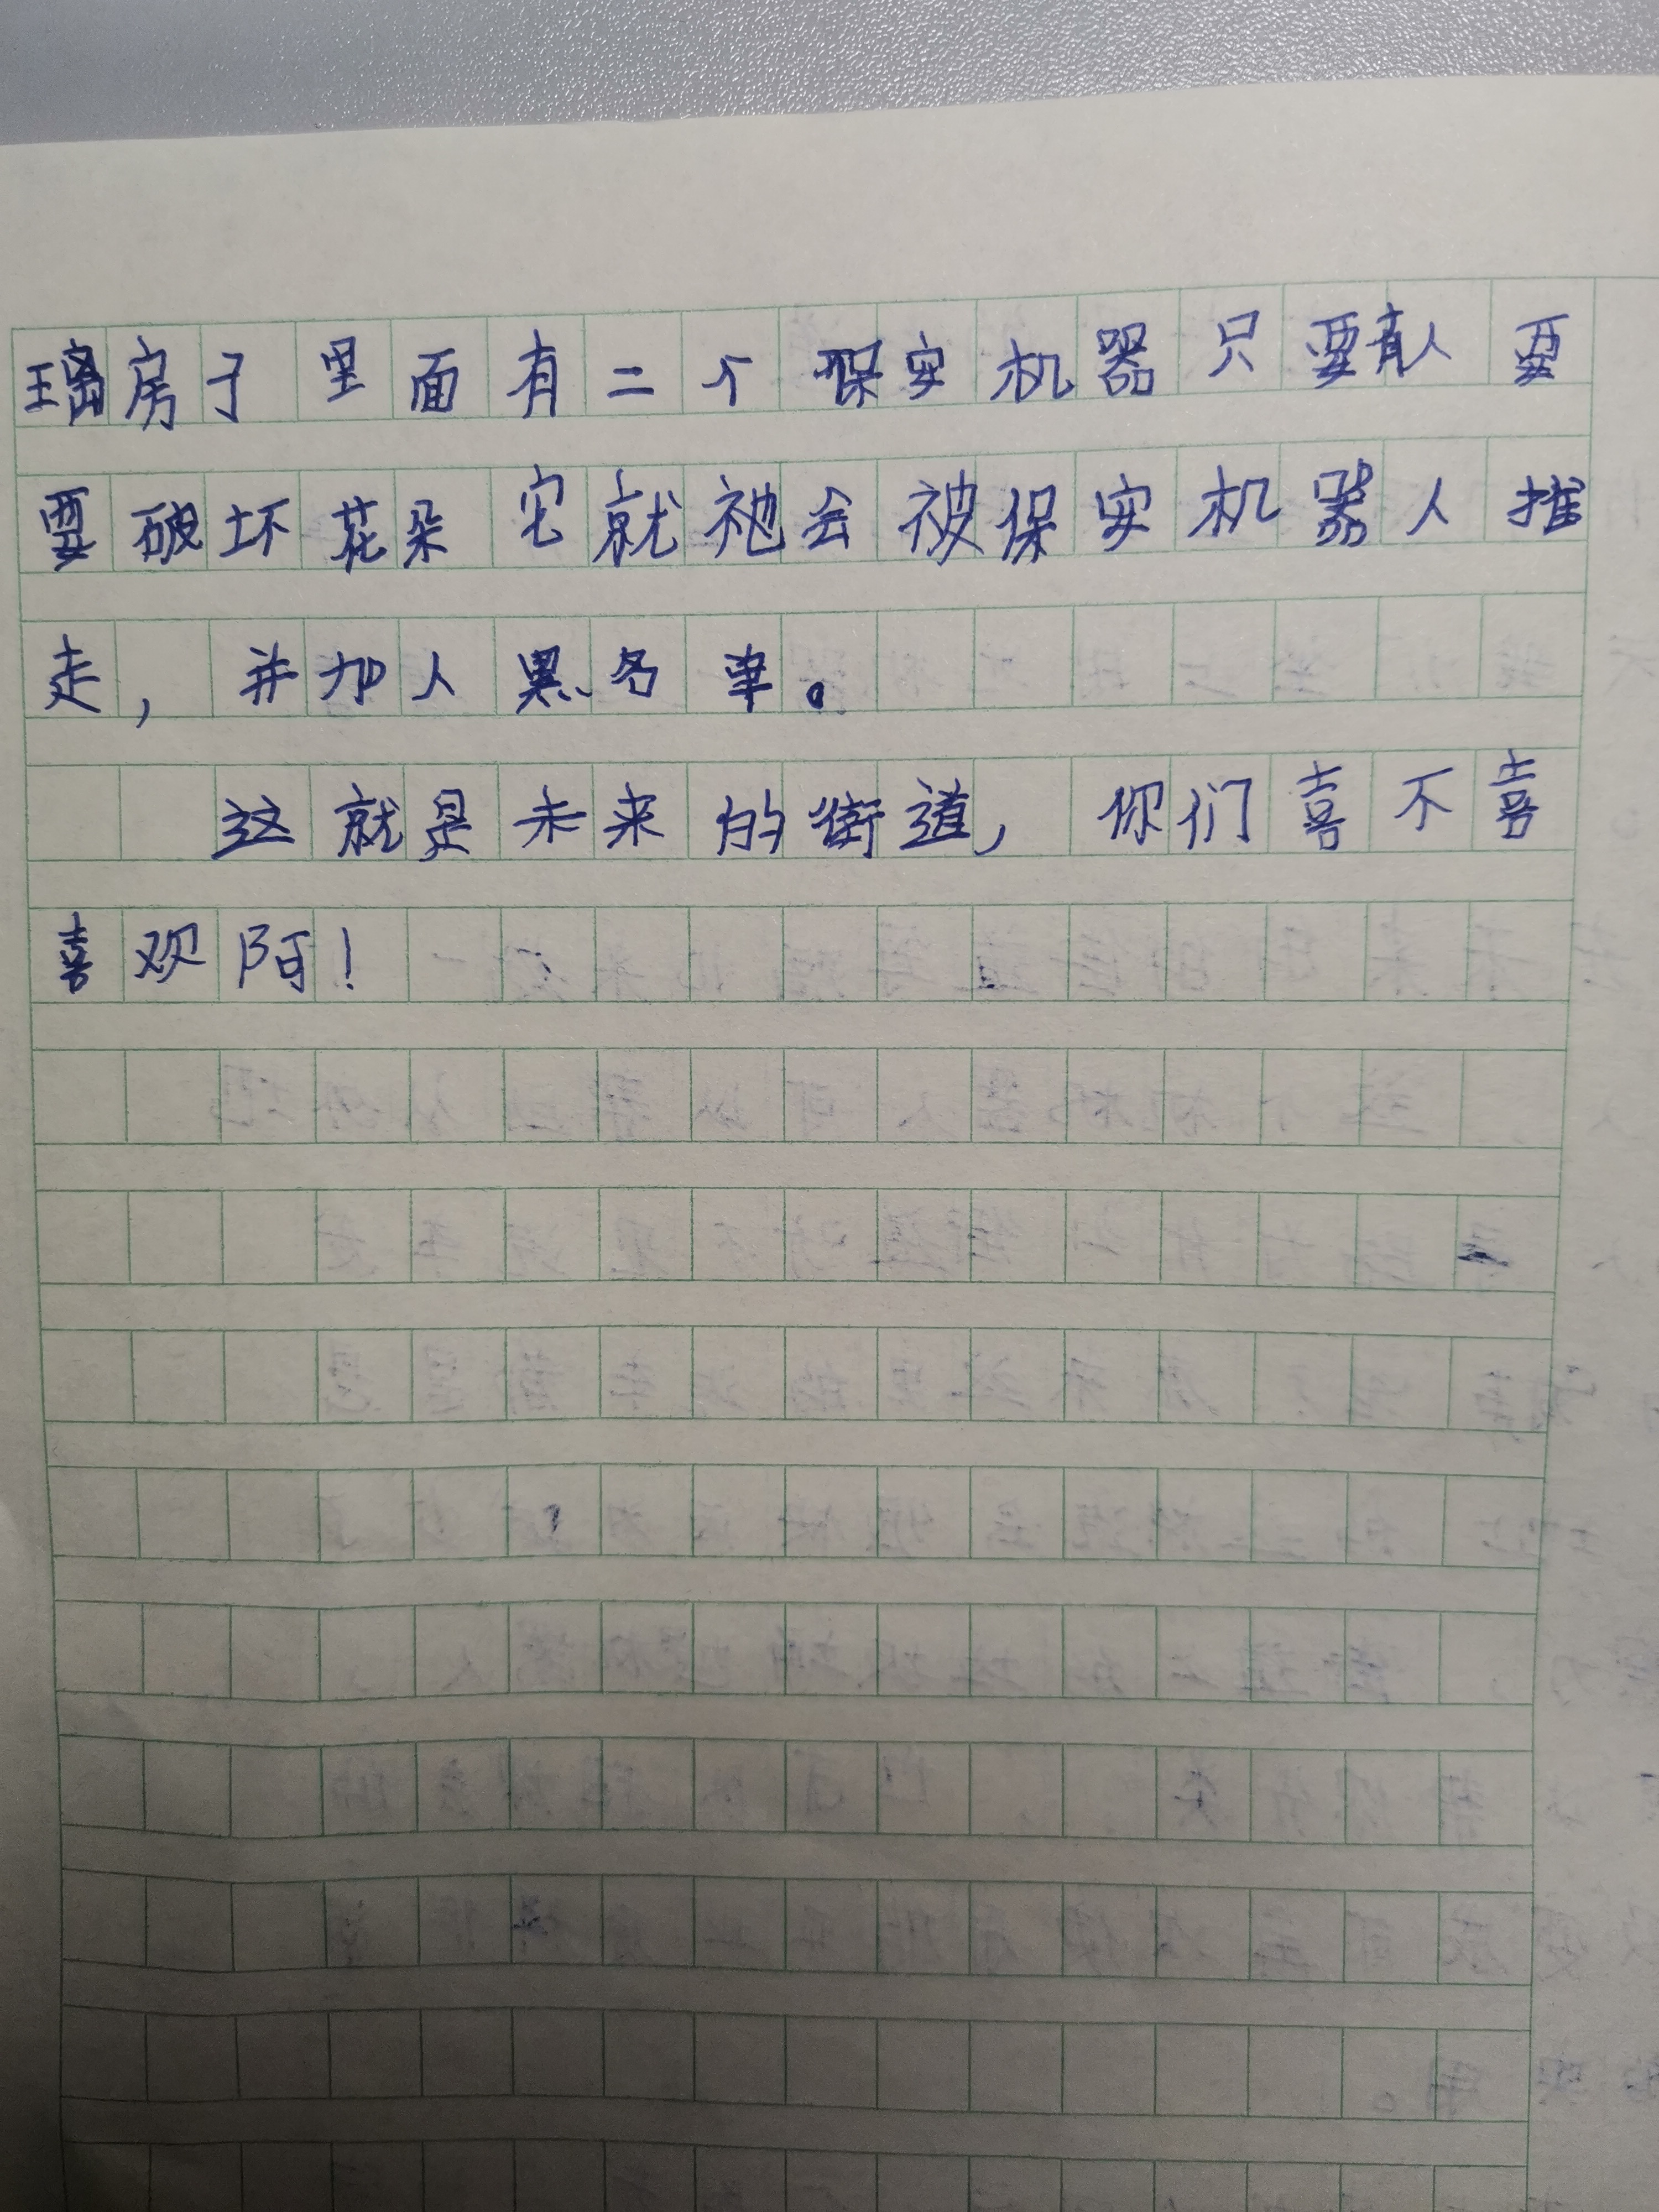 璃房子里面有二个保安机器只要有人要
要破坏花朵它就祂会被保安机器人推
走，并加人黑名单。
这就是未来的街道，你们喜不喜
喜欢阿！